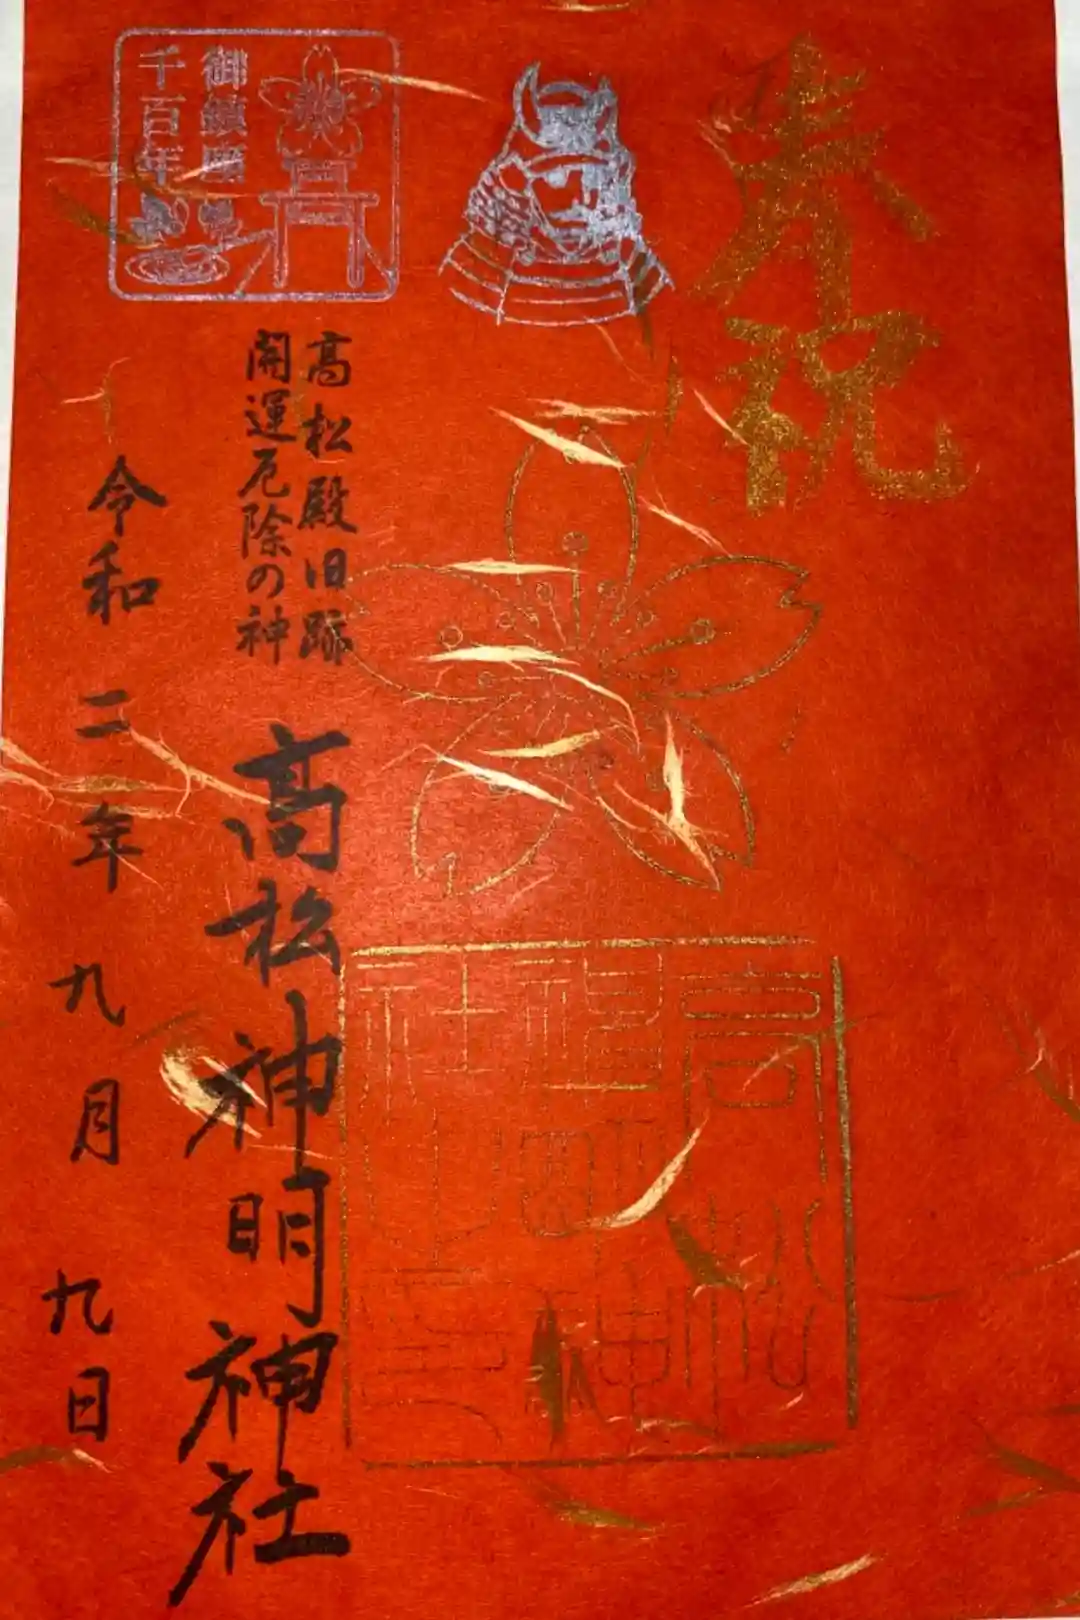 奉祝
御鎮座
千百年
高松殿旧跡
開運厄除の神
高松神明神社
令和二年九月九日